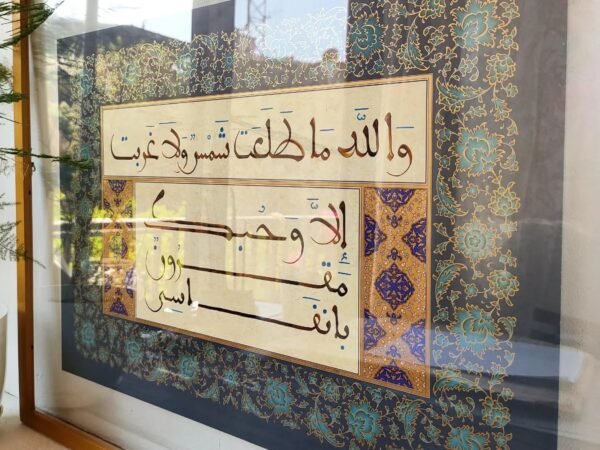 وَاللَّه مَا طَلَعَت شَمْسٌ وَلَا غَرَبت
الَّا وَحُبـك
مَقـرُونٌ
بانفَـاسِى